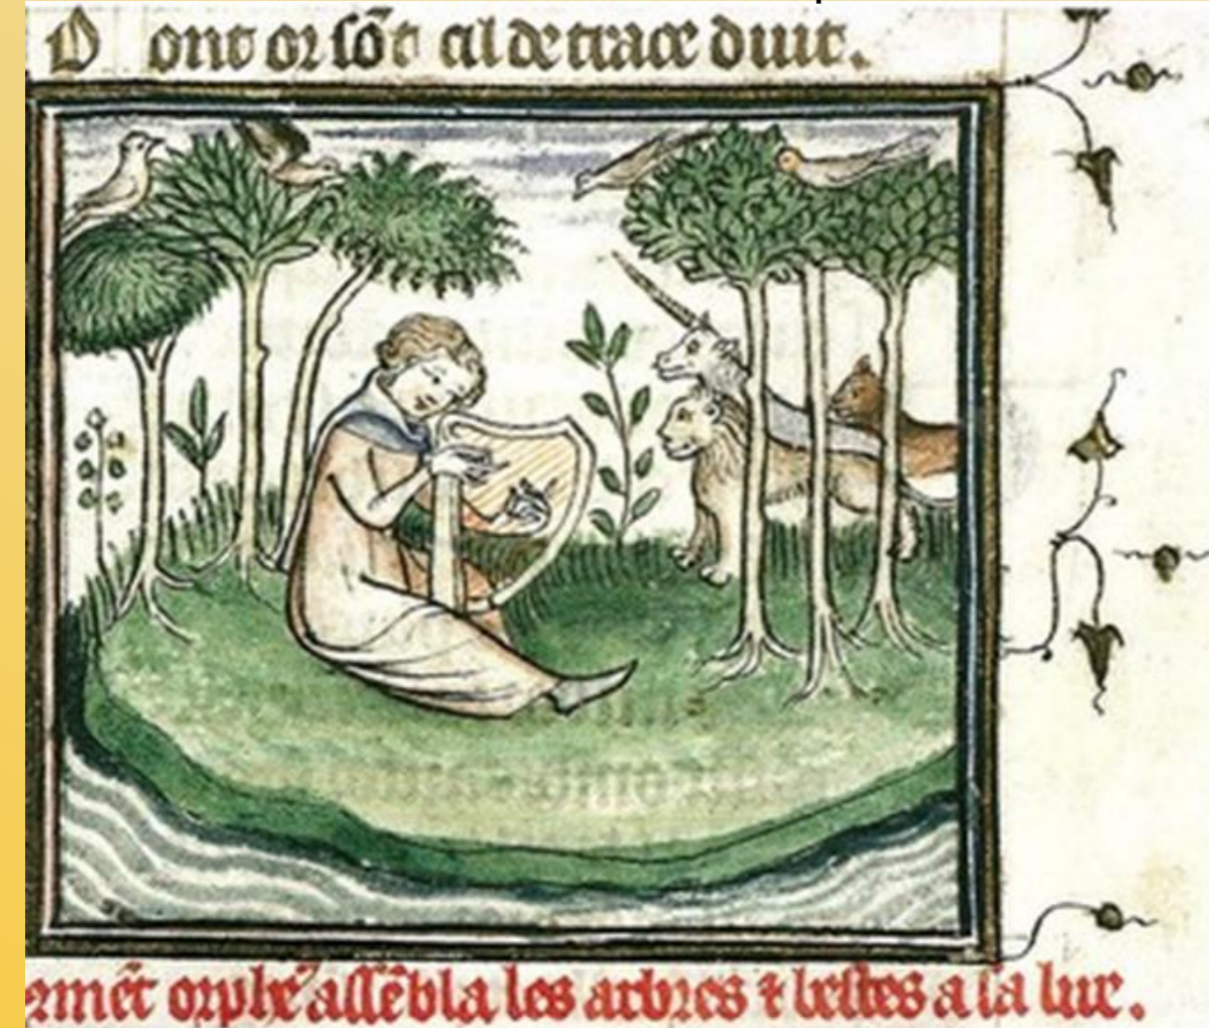 D ont or sõt cil de trace duit.
orphe᾿ assēbla les arbres ⁊ bestes a sa lire.